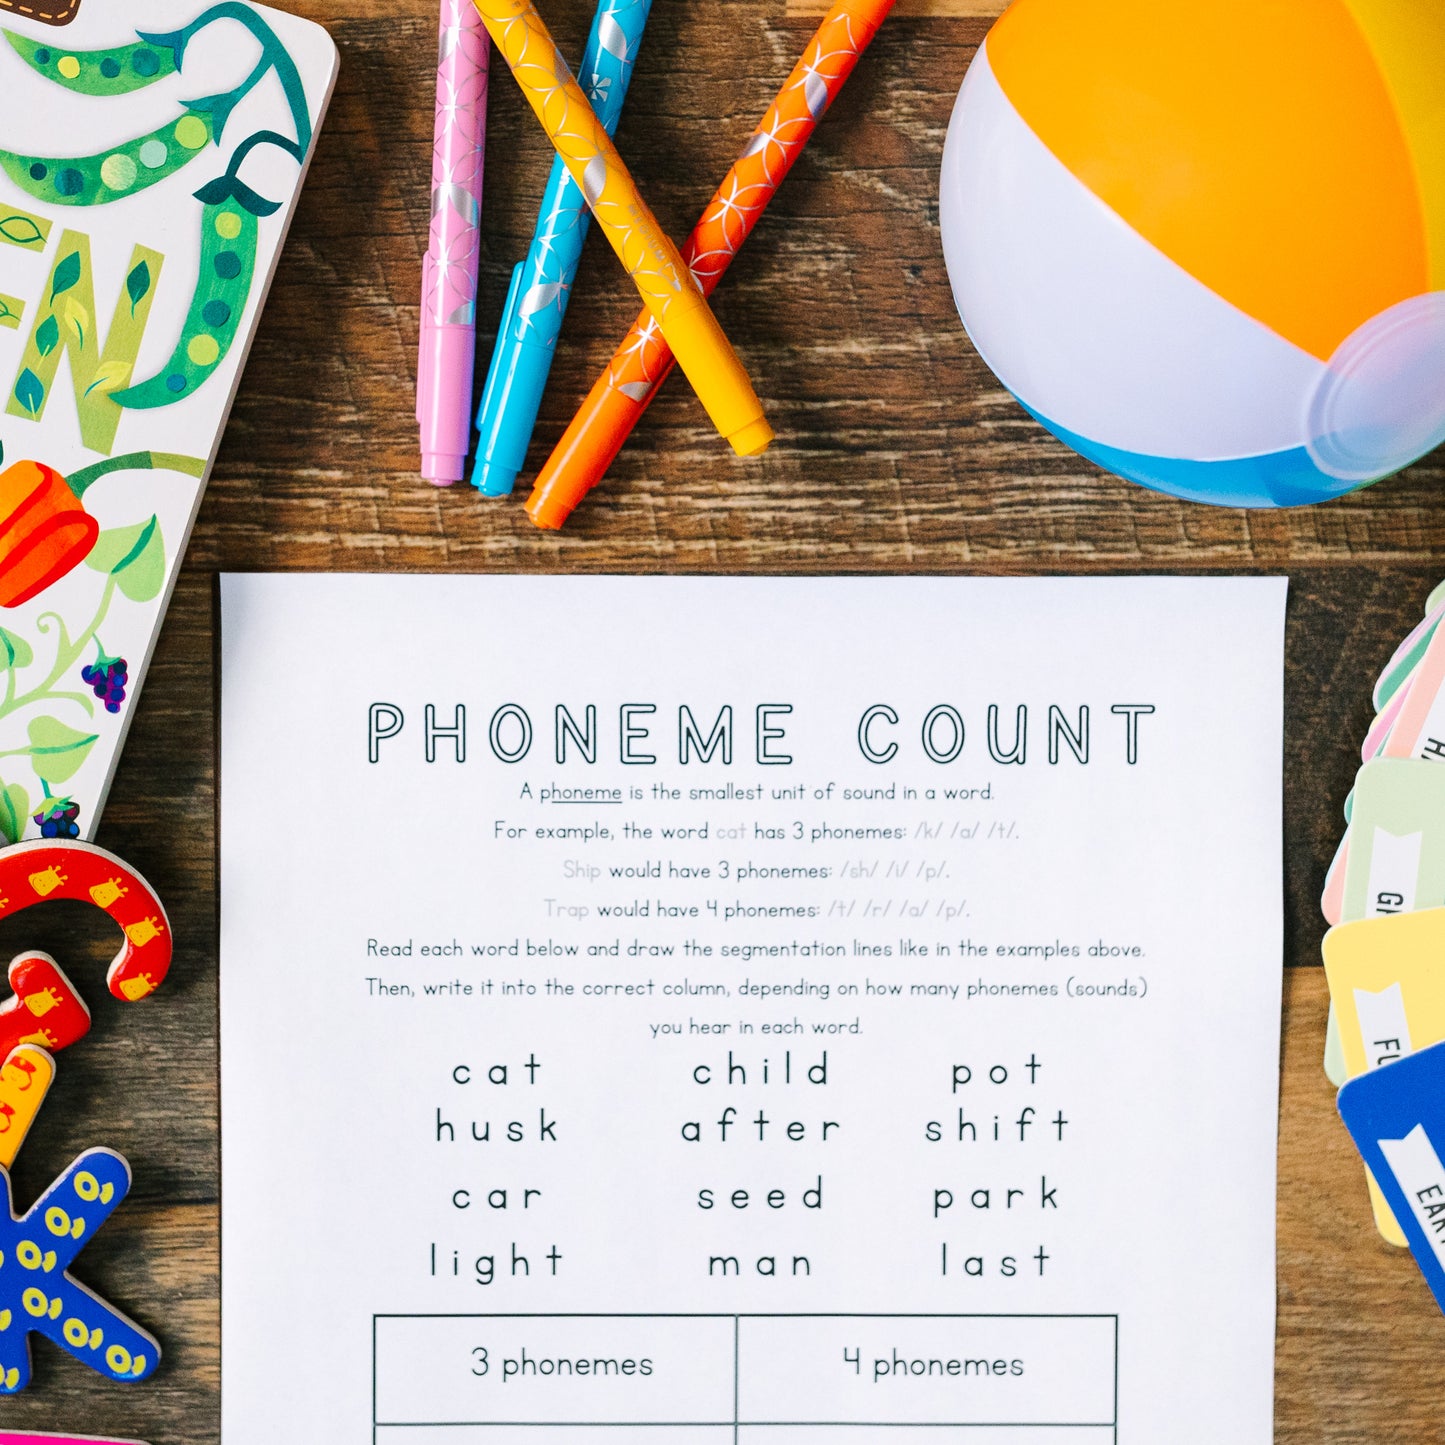 EN
PHONEME COUNT
A phoneme is the smallest unit of sound in a word.
For example, the word cat has 3 phonemes: /k/ /a/ /t/.
Ship would have 3 phonemes: /sh/ /i/ /p/.
Trap would have 4 phonemes: /t/ /r/ /a/ /p/.
Read each word below and draw the segmentation lines like in the examples above.
Then, write it into the correct column, depending on how many phonemes (sounds)
you hear in each word.
cat child pot
husk after shift
car seed park
light man last
3 phonemes 4 phonemes